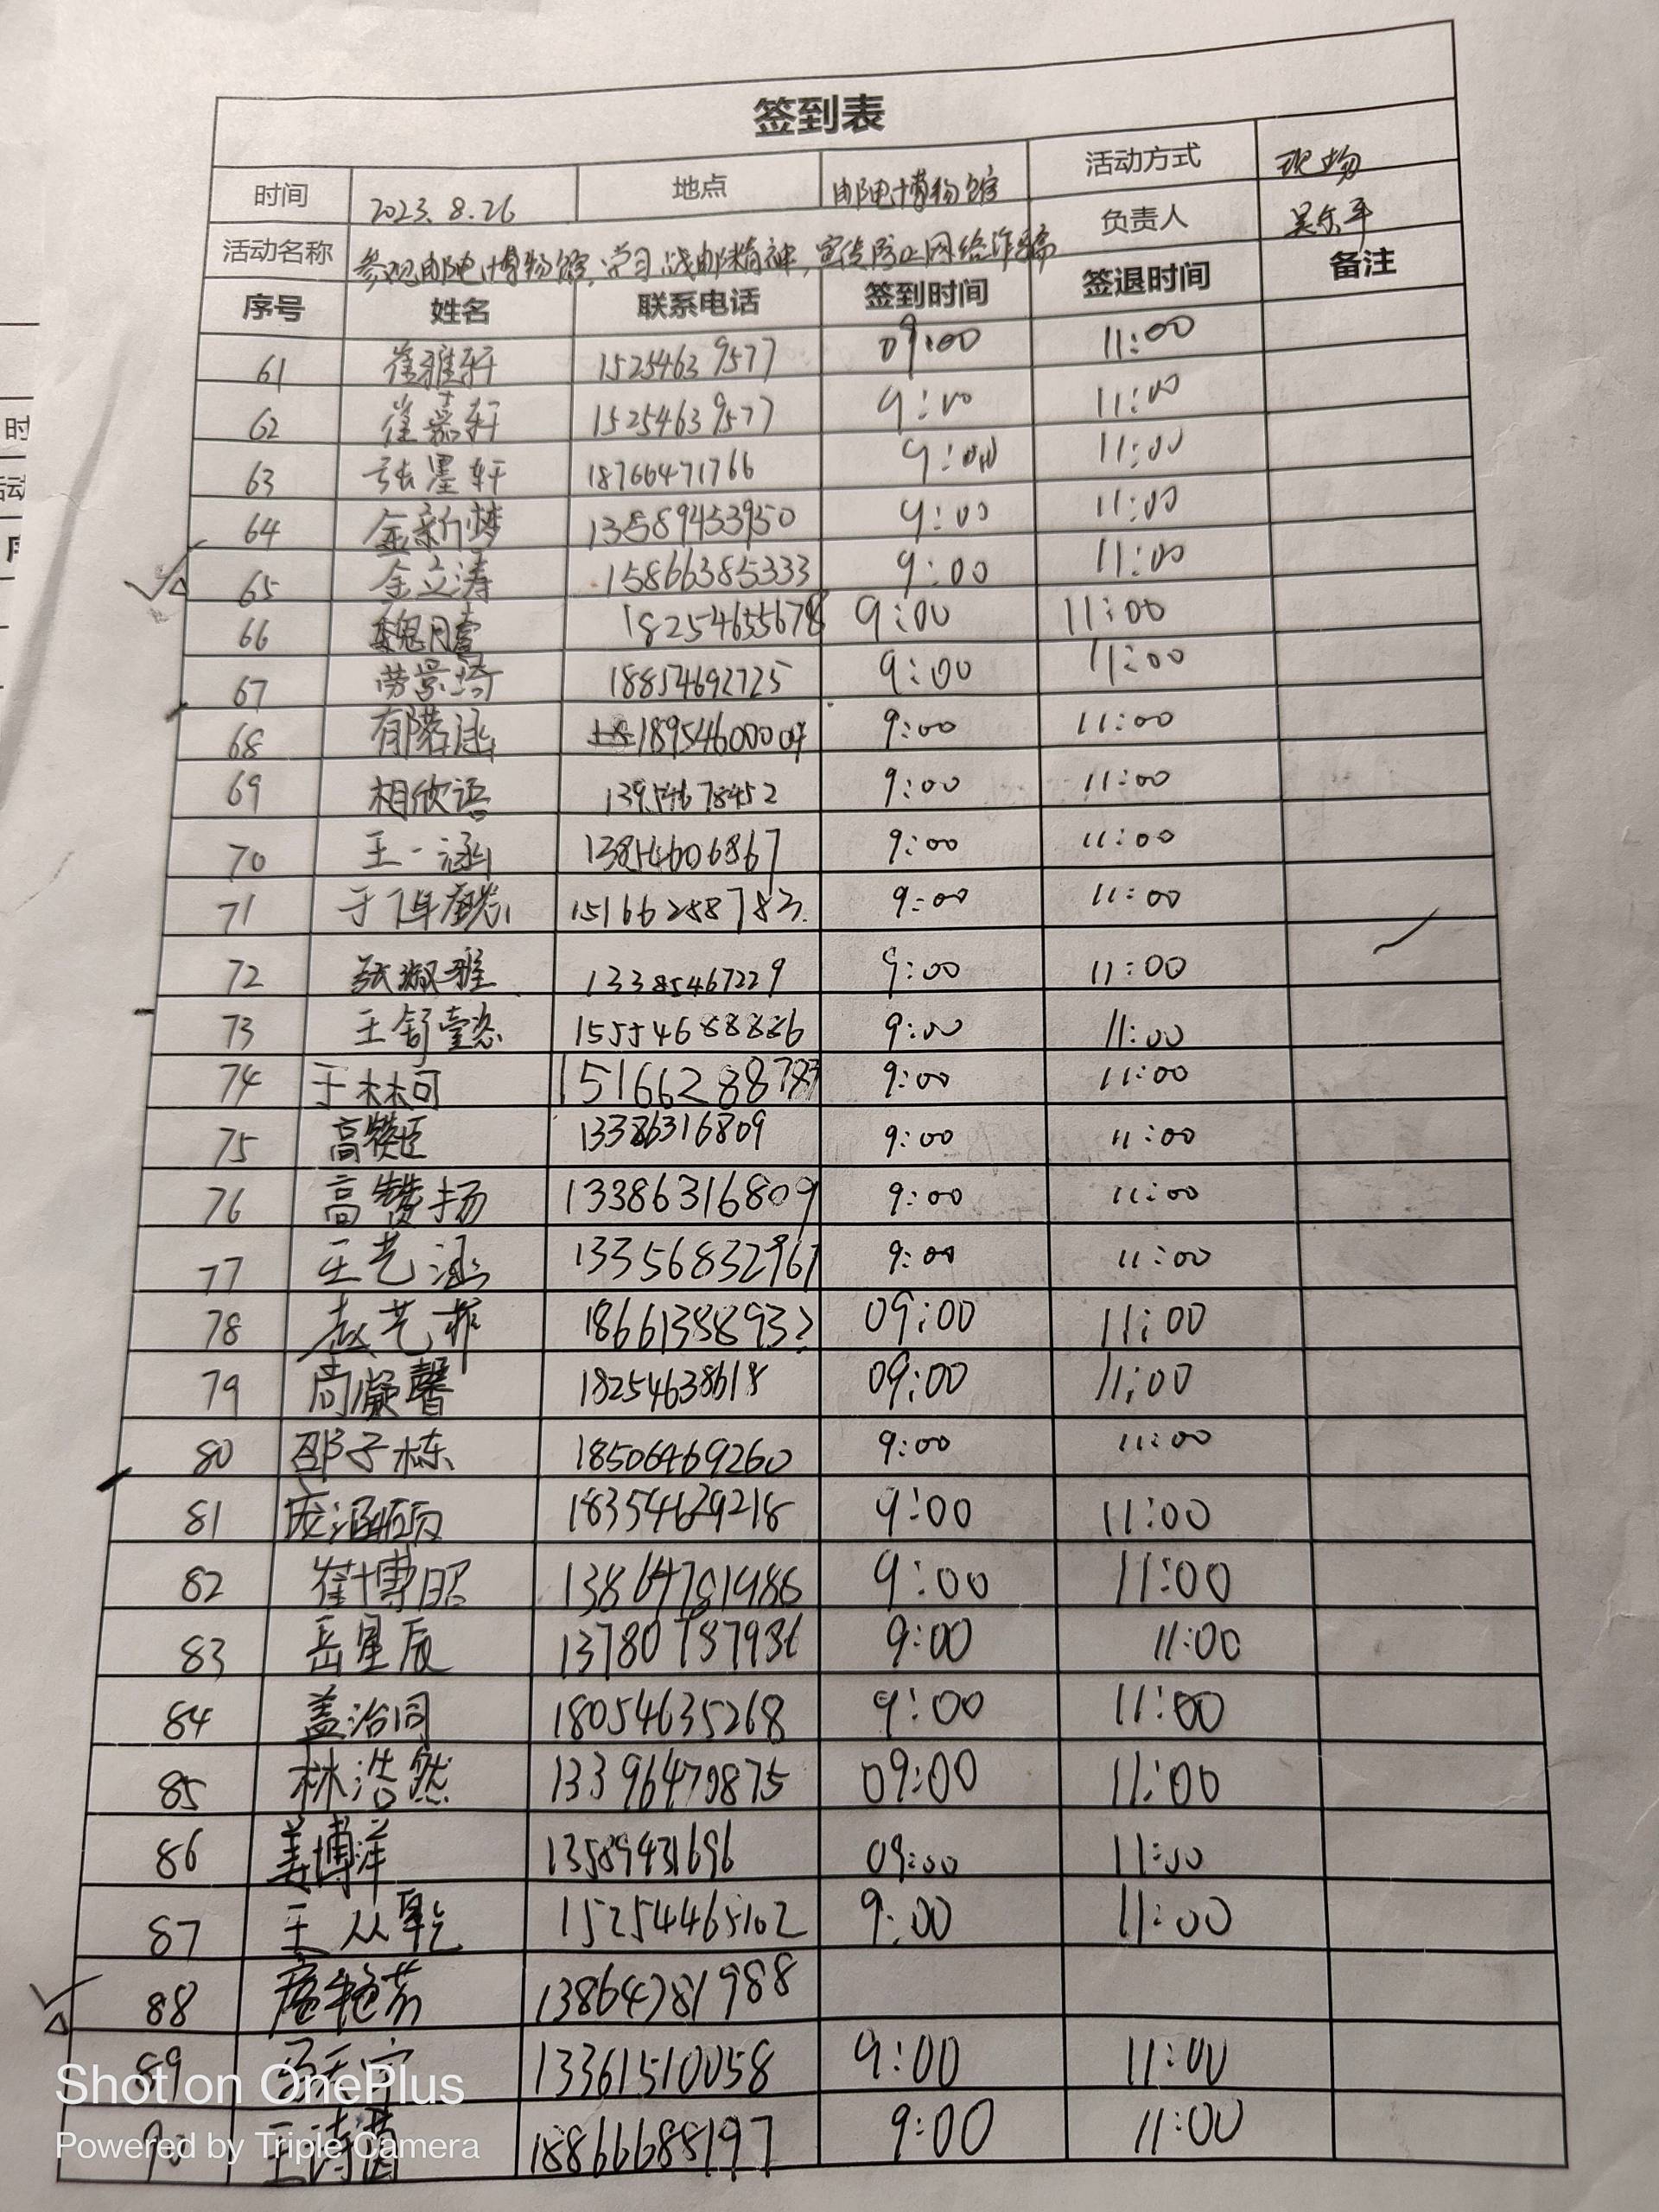 签到表
时间 2023.8.26 地点 邮电博物馆 活动方式 现场
活动名称 参观邮电博物馆,学习战邮精神,宣传防止网络诈骗 负责人 吴乐平
序号 姓名 联系电话 签到时间 签退时间 备注
61 崔雅轩 15254639577 09:00 11:00
62 崔嘉轩 15254639577 9:00 11:00
63 张墨轩 18766471766 9:00 11:00
64 金新梦 13589453950 9:00 11:00
65 金立涛 15866385333 9:00 11:00
66 魏 18254655678 9:00 11:00
67 劳景琦 18854692725 9:00 11:00
68 18954600009 9:00 11:00
69 相欣语 13954678452 9:00 11:00
70 王一涵 13854606867 9:00 11:00
71 于 15166288783 9:00 11:00
72 张淑雅 13385467229 9:00 11:00
73 王舒 15554688886 9:00 11:00
74 于林可 15166288783 9:00 11:00
75 高赞臣 13386316809 9:00 11:00
76 高赞扬 13386316809 9:00 11:00
77 王艺涵 13356832967 9:00 11:00
78 赵艺菲 18661388932 09:00 11:00
79 尚凝馨 18254638618 09:00 11:00
80 邵子栋 18506469260 9:00 11:00
81 庞涵颐 18354629218 9:00 11:00
82 崔博昭 13864781988 9:00 11:00
83 岳星辰 13780787936 9:00 11:00
84 盖治同 18054635268 9:00 11:00
85 林浩然 13396470875 09:00 11:00
86 姜博洋 13589431696 09:00 11:00
87 王从乾 15254465102 9:00 11:00
88 13864781988
89 13361510058 9:00 11:00
90 王诗茵 18866688197 9:00 11:00
Shot on OnePlus
Powered by Triple Camera